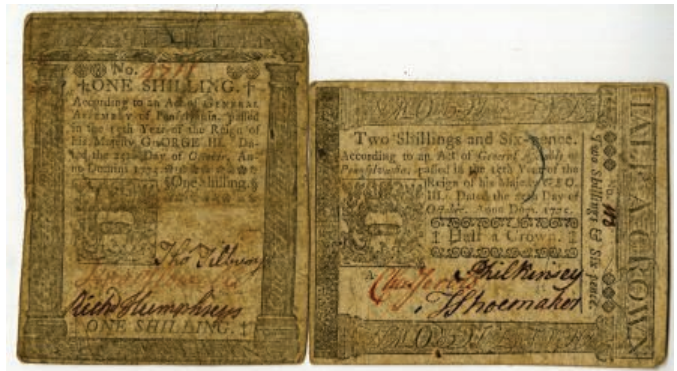 No.
ONE SHILLING.
According to an Act of GENERAL
ASSEMBLY of Pennsylvania, passed
in the 15th Year of the Reign of
His Majesty GEORGE III. Da-
ted the 25th Day of October, An-
no Domini 1775.
One Shilling.
Tho Tilbury
Richd Humphreys
ONE SHILLING.
Two Shillings and Six-pence.
According to an Act of General Assembly of
Pennsylvania, passed in the 15th Year of the
Reign of his Majesty GEO.
III. Dated the 25th Day of
October, Anno Dom. 1775.
Half a Crown.
A
Phil Kinsey
Shoemaker
No.
Two Shillings & Six-pence.
HALF A CROWN